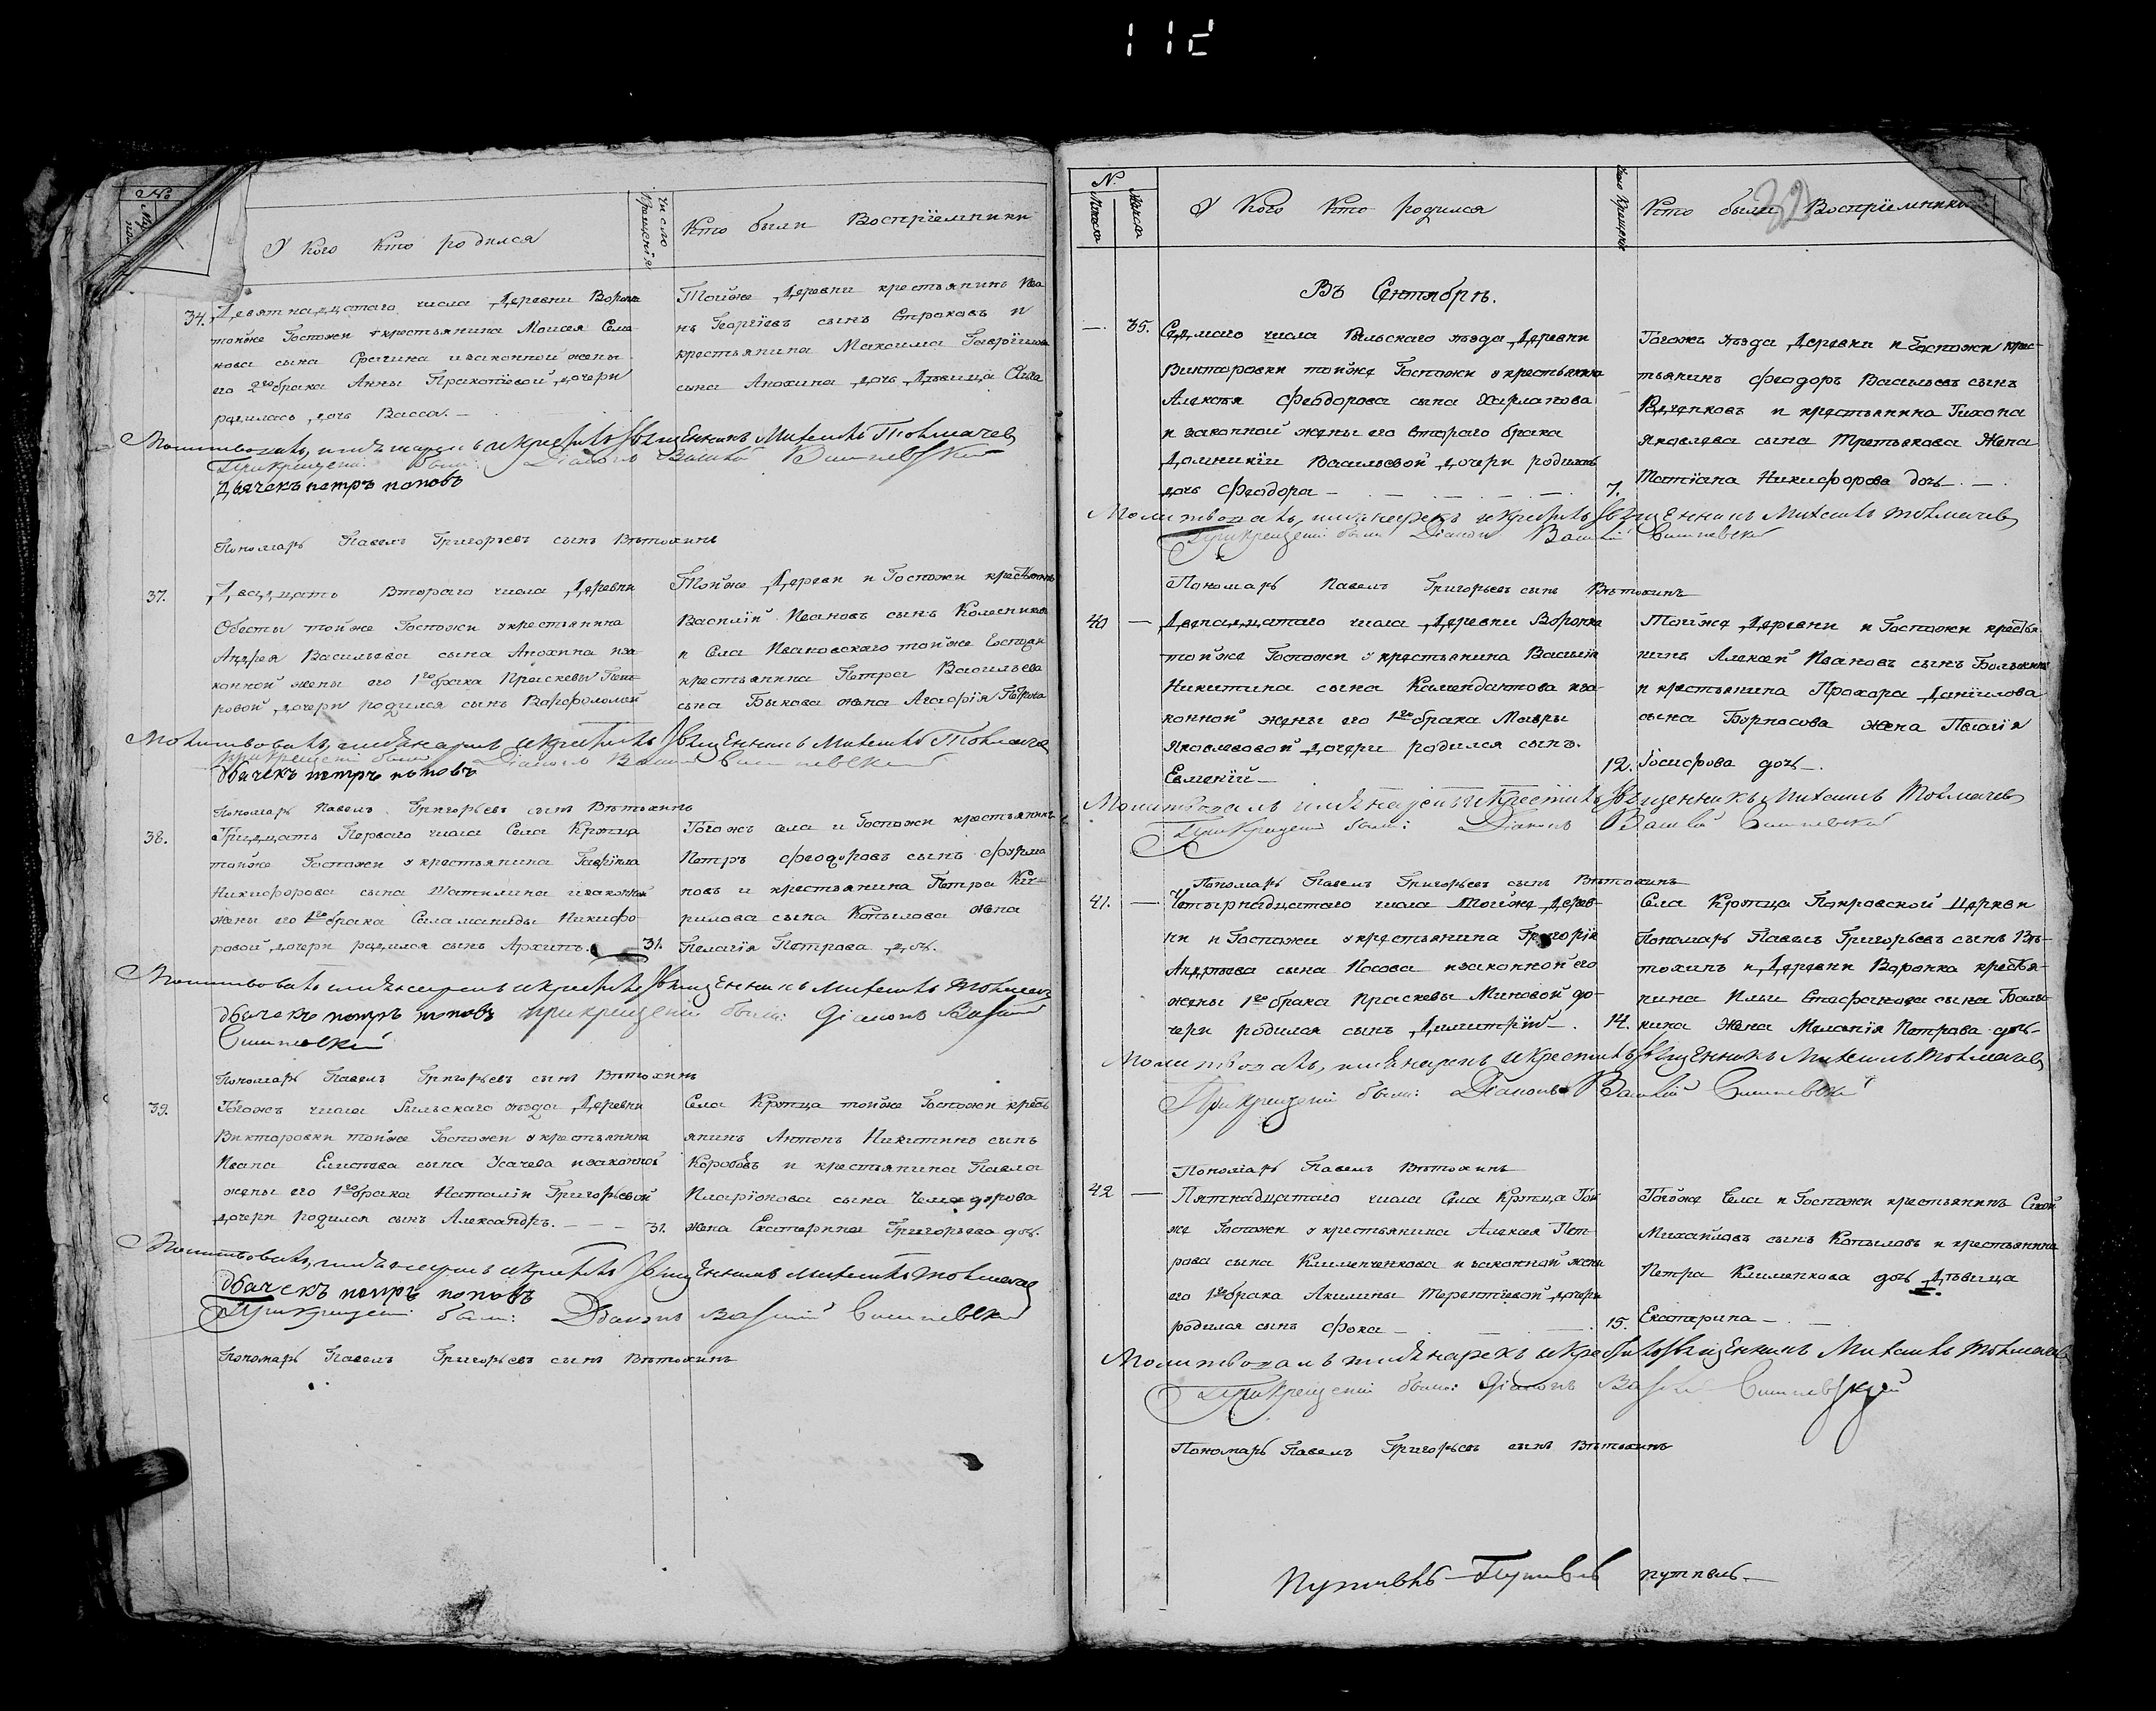 112
№
У Кого Кто родился
Число Крещенія
Кто были Воспріемники
34. Девятнадцатаго числа Деревни Воронка
тойже Госпожи у крестьянина Моисея
нова сына и законной жены
его 2го брака Анны Прокопіевой дочери
родилась дочь Васса.
Тойже Деревни крестьянинъ Ива
нъ Георгіевъ сынъ Строковъ и
крестьянина Максима Гавріилова
сына Анохина дочь Дѣвица
Молитвовалъ, имя нарекъ и крестилъ Священникъ Михаилъ Толмачев
При крещеніи были: Діаконъ Василій Вишневскій
Дьячекъ петръ поповъ
Пономарь Павелъ Григорьевъ сынъ Вѣтохинъ
37. Двадцать Втораго числа Деревни
Обесты тойже Госпожи у крестьянина
Андрея Васильева сына Анохина иза
конной жены его 1го брака Праскевы Пет
ровой дочери родился сынъ Варфоломей
Тойже Деревни и Госпожи крестьянинъ
Василій Ивановъ сынъ Колесников
и Села Ивановскаго тойже Госпожи
крестьянина Петра Васильева
сына Быкова жена Агафія Петрова
Молитвовалъ, имя нарекъ и крестилъ Священникъ Михаилъ Толмачев
При крещеніи были Діаконъ Василій Вишневскій
дьячекъ петръ поповъ
Пономарь Павелъ Григорьевъ сынъ Вѣтохинъ
38. Тридцать Перваго числа Села Крупца
тойже Госпожи у крестьянина Гавріила
Никифорова сына Шатилина и законной
жены его 1го брака Саламаниды Никифо
ровой дочери родился сынъ Архипъ. 31.
Тогожъ села и Госпожи крестьянинъ
Петръ Феодоровъ сынъ
новъ и крестьянина Петра Ки
рилова сына Копылова жена
Пелагія Петрова дочь.
Молитвовалъ имя нарекъ и крестилъ Священникъ Михаилъ Толмачев
дьячекъ петръ поповъ при крещеніи были: Діаконъ Василій
Вишневскій
Пономарь Павелъ Григорьевъ сынъ Вѣтохинъ
39. Тогожъ числа Рыльскаго уѣзда Деревни
Викторовки тойже Госпожи у крестьянина
Ивана сына Усачева и законной
жены его 1го брака Наталіи Григорьевой
дочери родился сынъ Александръ. 31.
Села Крупца тойже Госпожи кресть
янинъ Антонъ Никитинъ сынъ
Коробовъ и крестьянина Павла
Иларіонова сына
жена Екатерина Григорьева дочь.
Молитвовалъ, имя нарекъ и крестилъ Священникъ Михаилъ Толмачев
дьячекъ петръ поповъ
При крещеніи были: Діаконъ Василій Вишневскій
Пономарь Павелъ Григорьевъ сынъ Вѣтохинъ
N.
Мужска
Женска
У Кого Кто родился
Число Крещенія
Кто были Воспріемники
32
Въ Сентябрѣ.
— 35. Седмаго числа Рыльскаго уѣзда Деревни
Викторовки тойже Госпожи у крестьянина
Алексѣя Феодорова сына Харланова
и законной жены его втораго брака
Домникіи Васильевой дочери родилась
дочь Феодора 7.
Тогожъ уѣзда Деревни и Госпожи крес-
тьянинъ Феодоръ Васильевъ сынъ
и крестьянина Тихона
Яковлева сына Третьякова Жена
Татіана Никифорова дочь
Молитвовалъ, имя нарекъ и крестилъ Священникъ Михаилъ Толмачев
При крещеніи были Діаконъ Василій Вишневскій
Пономарь Павелъ Григорьевъ сынъ Вѣтохинъ
40 — Двенадцатаго числа Деревни Воронка
тойже Госпожи у крестьянина Василія
Никитина сына Камендантова иза
конной жены его 1го брака Мавры
Яковлевой дочери родился сынъ.
Евменій 12.
Тойже Деревни и Госпожи крестья
нинъ Алексѣй Ивановъ сынъ
и крестьянина Прохора Даніилова
сына Борносова жена Пелагія
Іосифова дочь.
Молитвовалъ имя нарекъ и крестилъ Священникъ Михаилъ Толмачев
При крещеніи были: Діаконъ Василій Вишневскій
Пономарь Павелъ Григорьевъ сынъ Вѣтохинъ
41. — Четырнадцатаго числа Тойже Дерев-
ни и Госпожи у крестьянина Григорія
Андрѣева сына Носова и законной его
жены 1го брака Праскевы Миновой до-
чери родился сынъ Димитрій. 14.
Села Крупца Покровской Церкви
Пономарь Павелъ Григорьевъ сынъ Вѣ-
тохинъ и Деревни Воронка крестья-
нина Ильи Стефанова сына
кина жена Меланія Петрова дочь
Молитвовалъ, имя нарекъ и крестилъ Священникъ Михаилъ Толмачев
При крещеніи были: Діаконъ Василій Вишневскій
Пономарь Павелъ Вѣтохинъ
42 — Пятнадцатаго числа Села Крупца Той
же Госпожи у крестьянина Алексѣя Пет
рова сына Клименченкова и законной жены
его 1го брака Акилины Терентіевой дочери
родился сынъ Фока 15.
Тойже Села и Госпожи крестьянинъ
Михайловъ сынъ Копыловъ и крестьянина
Петра Клименкова дочь Дѣвица
Екатерина
Молитвовалъ имя нарекъ и крестилъ Священникъ Михаилъ Толмачев
При крещеніи были: Діаконъ Василій Вишневскій
Пономарь Павелъ Григорьевъ сынъ Вѣтохинъ
Путивль Путивль путивль